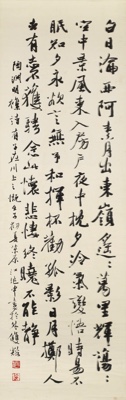 白日淪西阿素月出東嶺遥遥萬里輝蕩蕩
空中景風來入房戶夜中枕席冷氣變悟時易不
眠知夕永欲言無予和揮杯勸孤影日月擲人
去有志不獲騁念此懷悲悽終曉不能靜
陶淵明雜詩